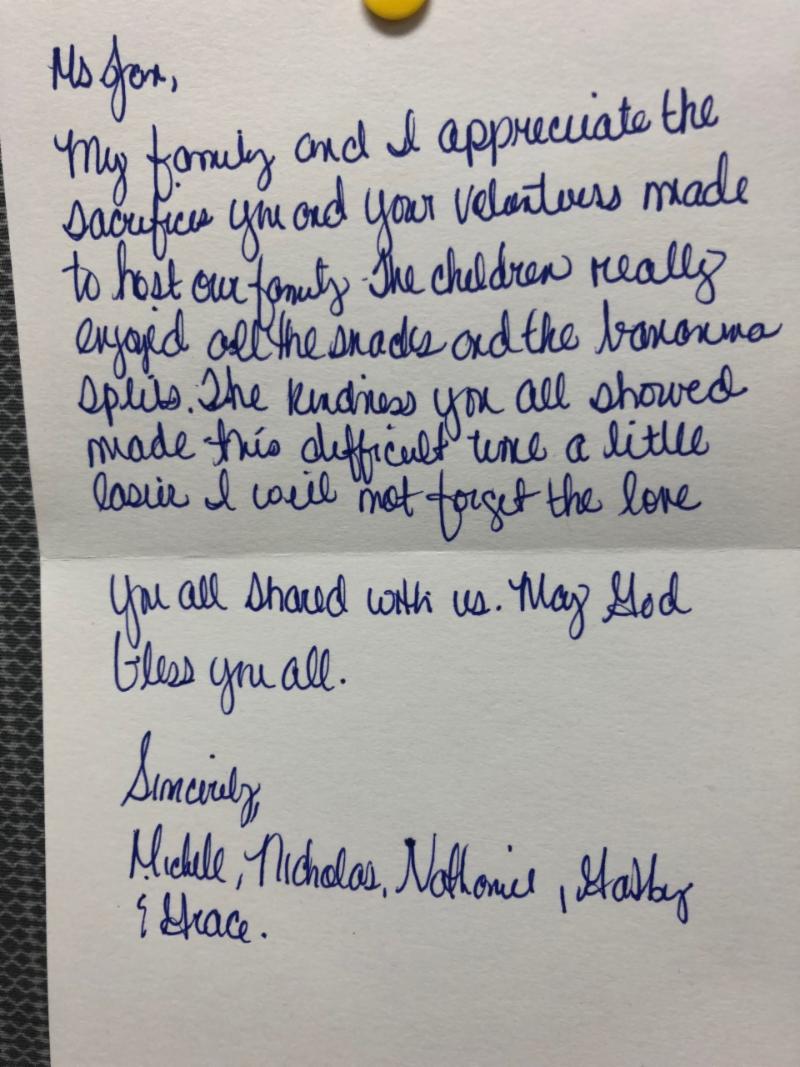 Ms Jan,
My family and I appreciate the
sacrifices you and your volunteers made
to host our family. The children really
enjoyed all the snacks and the bananna
splits. The kindness you all showed
made this difficult time a little
easier I will not forget the love
you all shared with us. May God
bless you all.
Sincerely,
Michele, Nicholas, Nathaniel,
& Grace.